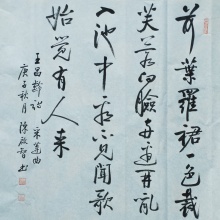 荷葉羅裙一色裁
芙蓉向臉兩邊開亂
入池中看不見聞歌
始覺有人来
王昌齡詩 采蓮曲
庚子秋月 陳啟智书